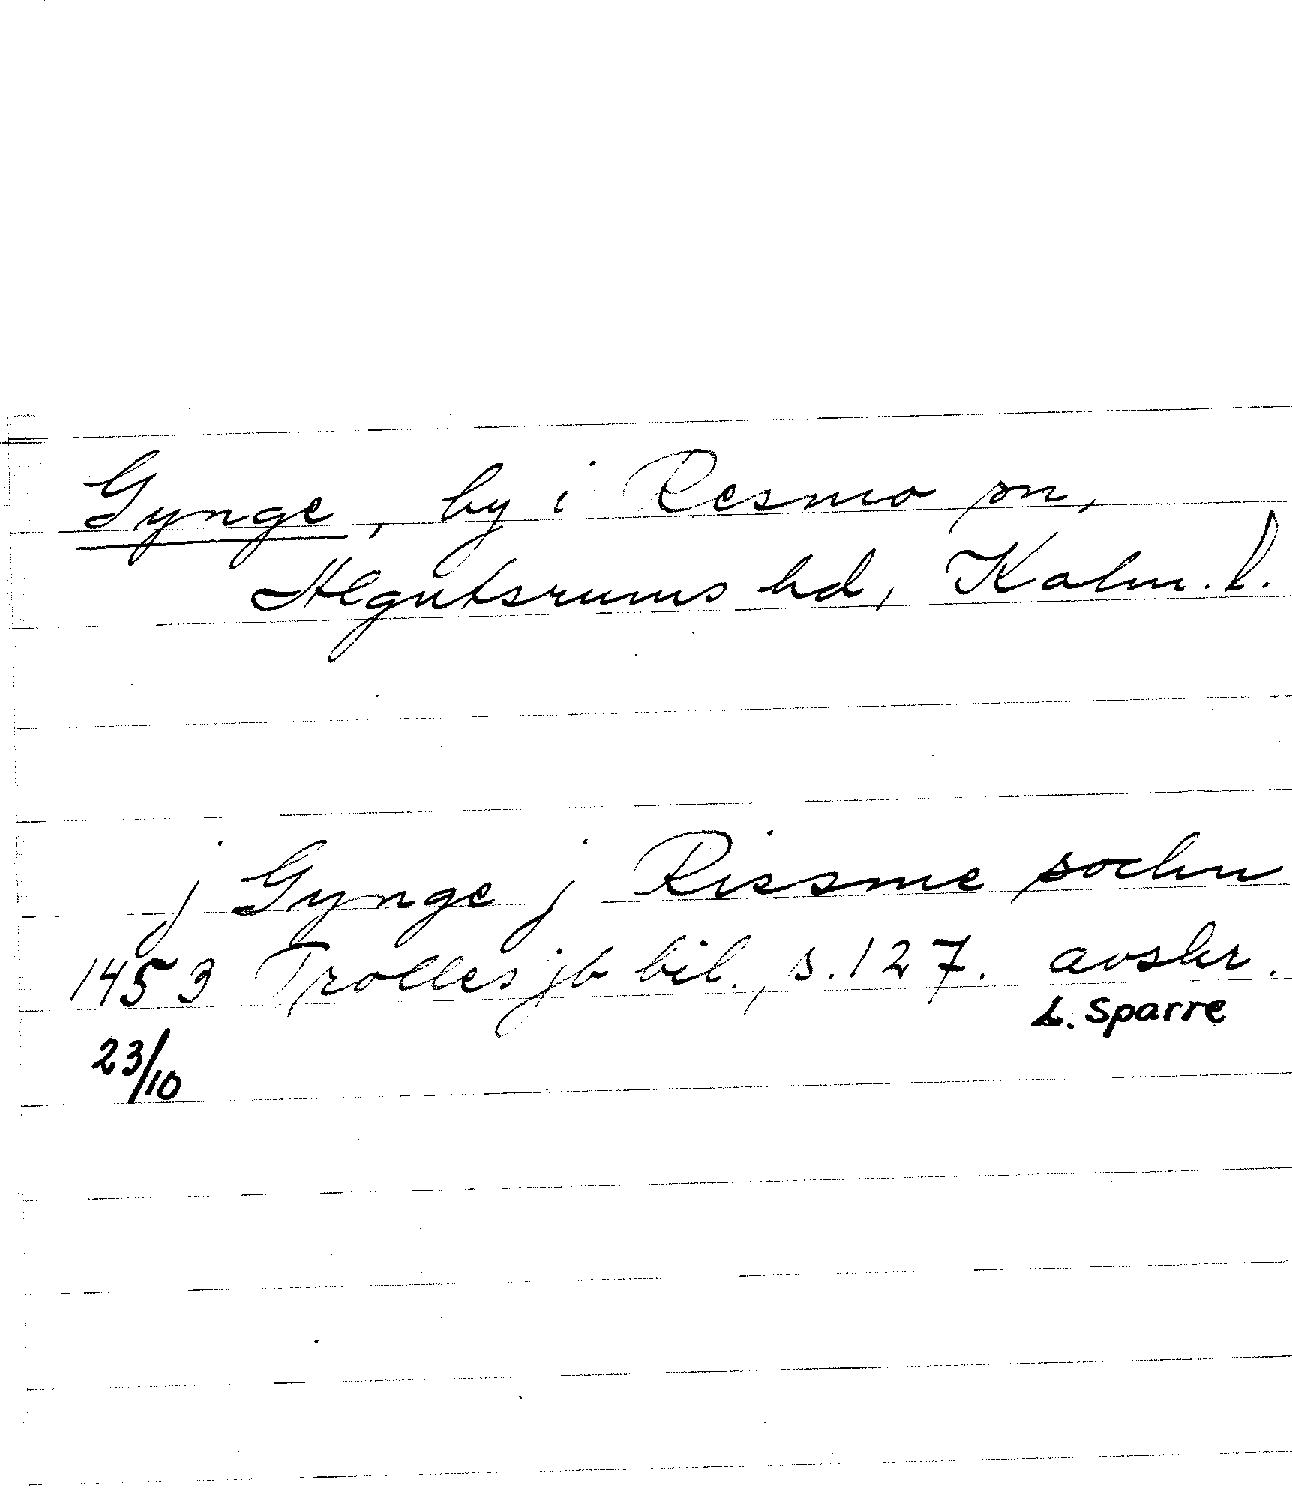 Gynge, by i Resmo sn,
Algutsrums hd, Kalm. l.
j Gynge j Rissme sochn
1453 Trolles jb bil., s. 127. avskr.
L. Sparre
23/10